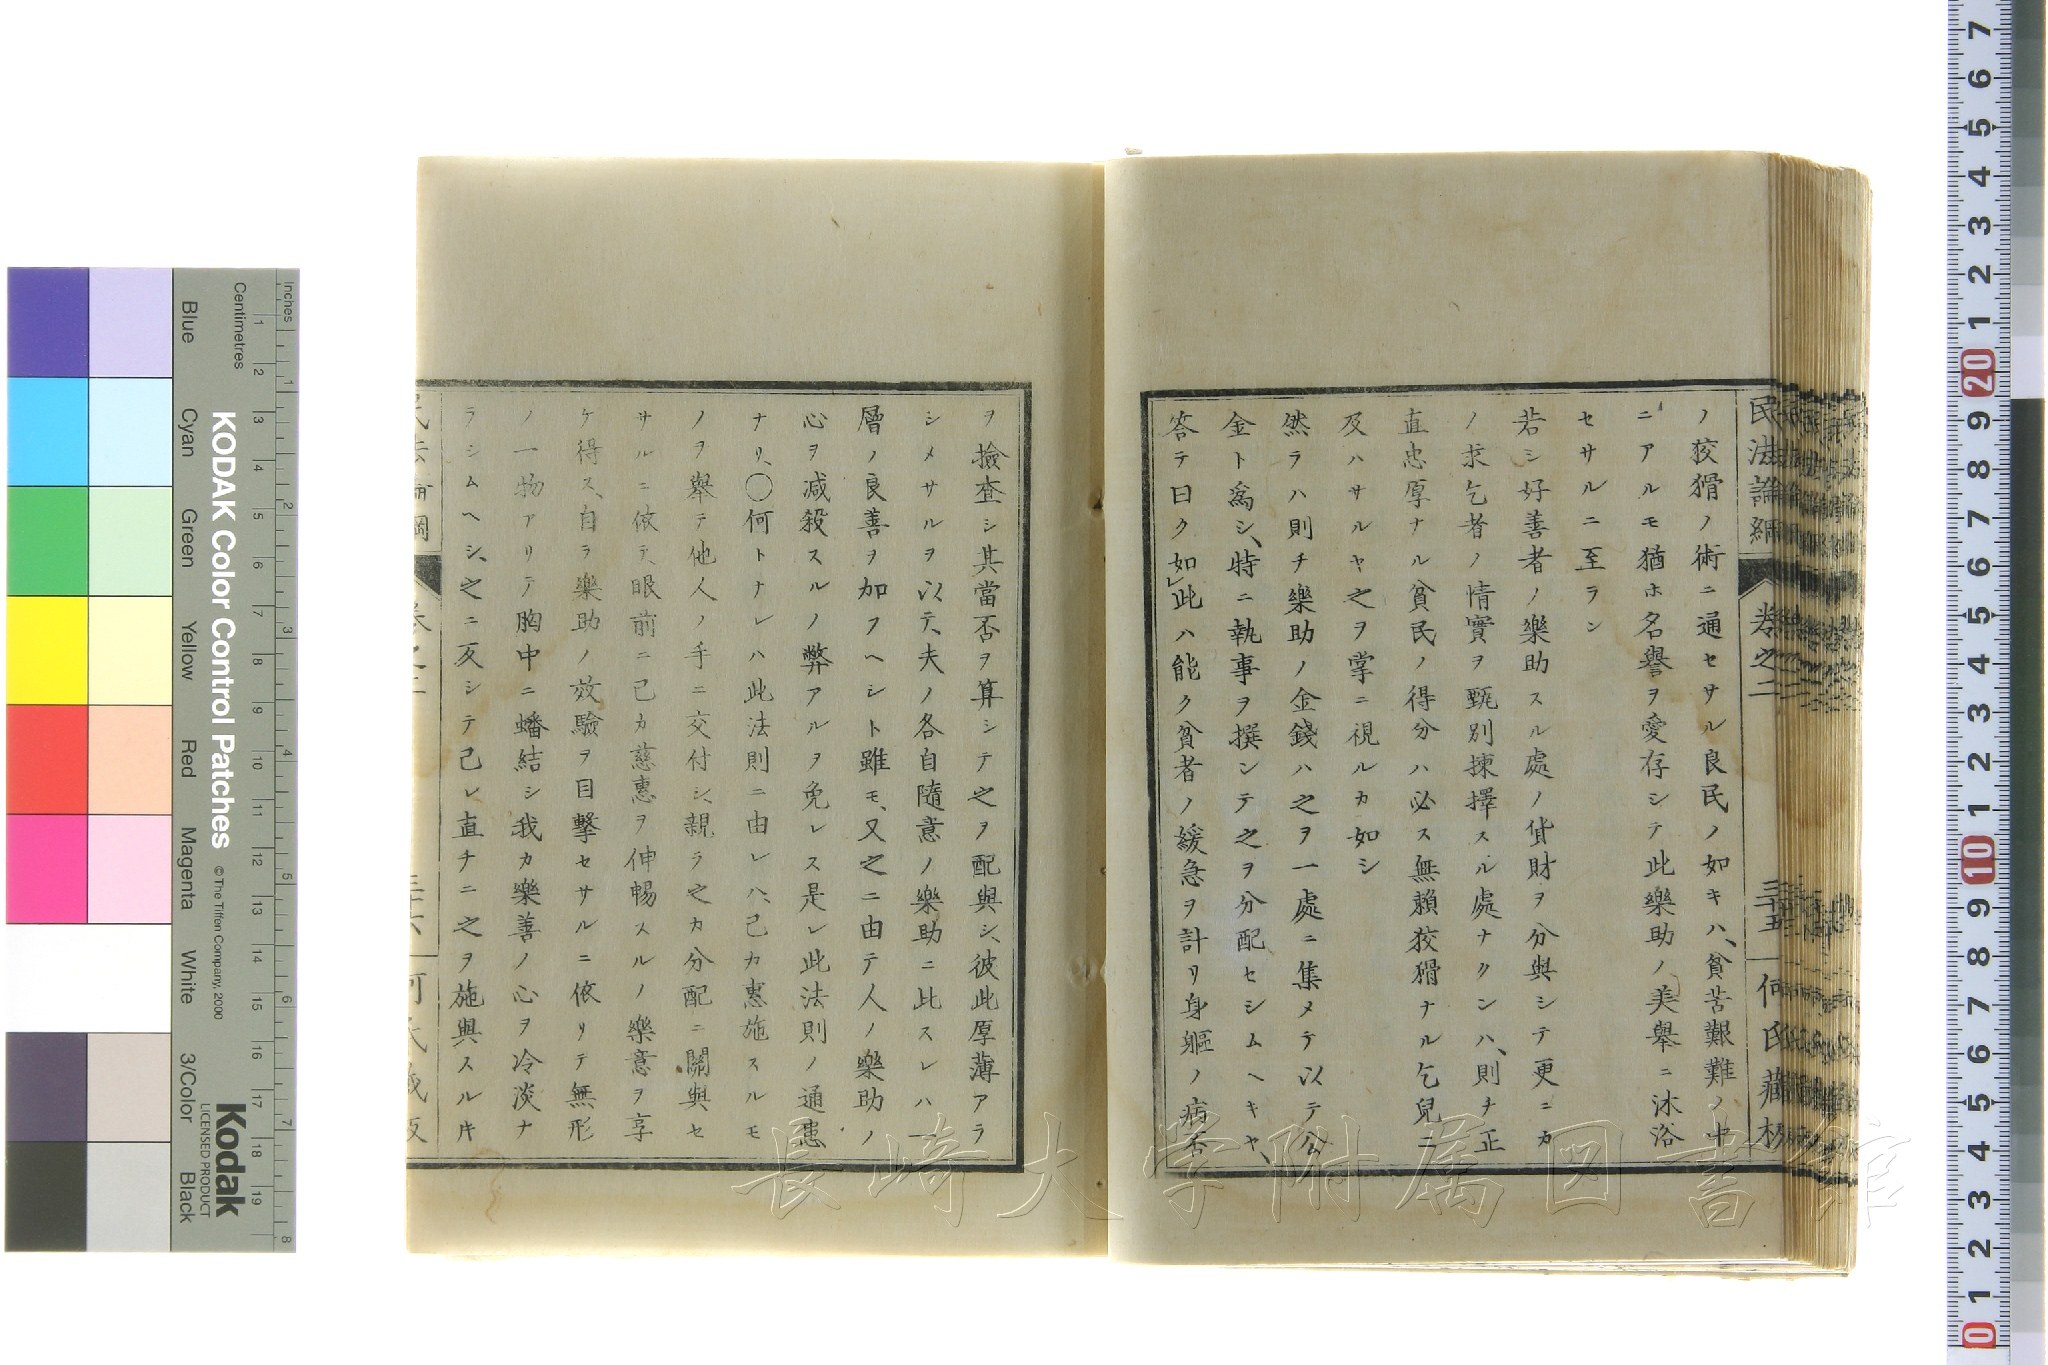 民法論綱
卷之二
三十五
何氏藏板
ノ狡猾ノ術ニ通セサル良民ノ如キハ、貧苦艱難ノ中
ニアルモ猶ホ名譽ヲ愛存シテ此樂助ノ美舉ニ沐浴
セサルニ至ラン
若シ好善者ノ樂助スル處ノ貨財ヲ分與シテ更ニカ
ノ求乞者ノ情實ヲ甄別揀擇スル處ナクンハ、則チ正
直忠厚ナル貧民ノ得分ハ必ス無賴狡猾ナル乞兒ニ
及ハサルヤ之ヲ掌ニ視ルカ如シ
然ラハ則チ樂助ノ金錢ハ之ヲ一處ニ集メテ以テ公
金ト爲シ、特ニ執事ヲ撰ンテ之ヲ分配セシムヘキヤ、
答テ曰ク如此ハ能ク貧者ノ緩急ヲ計リ身軀ノ病否
ヲ撿查シ其當否ヲ算シテ之ヲ配與シ、彼此厚薄アラ
シメサルヲ以テ、夫ノ各自隨意ノ樂助ニ比スレハ一
層ノ良善ヲ加フヘシト雖モ、又之ニ由テ人ノ樂助ノ
心ヲ減殺スルノ弊アルヲ免レス是レ此法則ノ通患
ナリ、〇何トナレハ此法則ニ由レハ、己カ惠施スルモ
ノヲ舉テ他人ノ手ニ交付シ、親ラ之カ分配ニ關與セ
サルニ依テ、眼前ニ己カ慈惠ヲ伸暢スルノ樂意ヲ享
ケ得ス、自ラ樂助ノ效驗ヲ目擊セサルニ依リテ無形
ノ一物アリテ胸中ニ蟠結シ我カ樂善ノ心ヲ冷淡ナ
ラシムヘシ、之ニ反シテ己レ直チニ之ヲ施與スル𪜈
民法論綱
卷之二
三十六
何氏藏板
長崎大学附属図書館
KODAK Color Control Patches
© The Tiffen Company, 2000
Kodak
LICENSED PRODUCT
Inches
Centimetres
1 2 3 4 5 6 7 8
1 2 3 4 5 6 7 8 9 10 11 12 13 14 15 16 17 18 19
Blue
Cyan
Green
Yellow
Red
Magenta
White
3/Color
Black
7 6 5 4 3 2 1 20 9 8 7 6 5 4 3 2 1 10 9 8 7 6 5 4 3 2 1 0